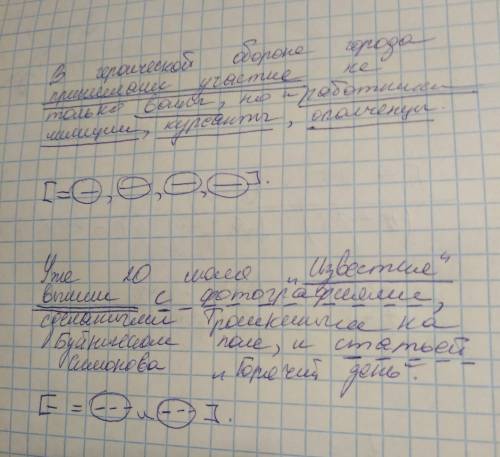 В героической обороне города
принимали участие не
только бойцы, но и работники
милиции, курсанты, ополченцы.
[= ⊖, ⊖, ⊖, ⊖].
Уже 20 июля „Известия"
вышли с фотографиями,
сделанными Трошкиным на
Буйничском поле, и статьей
Симонова „Горячий день".
[- = (--) и (--)].